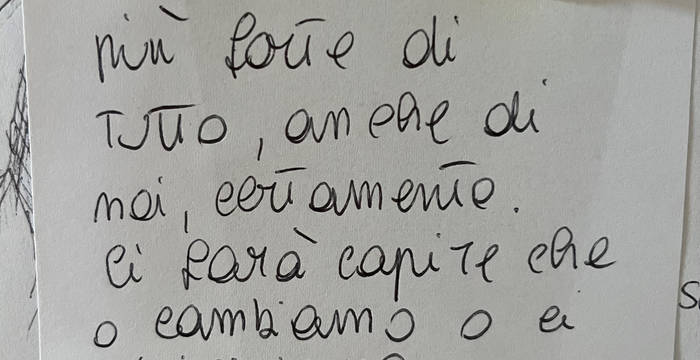 più forte di
TUTTO, anche di
noi, certamente.
ci farà capire che
o cambiamo o ci